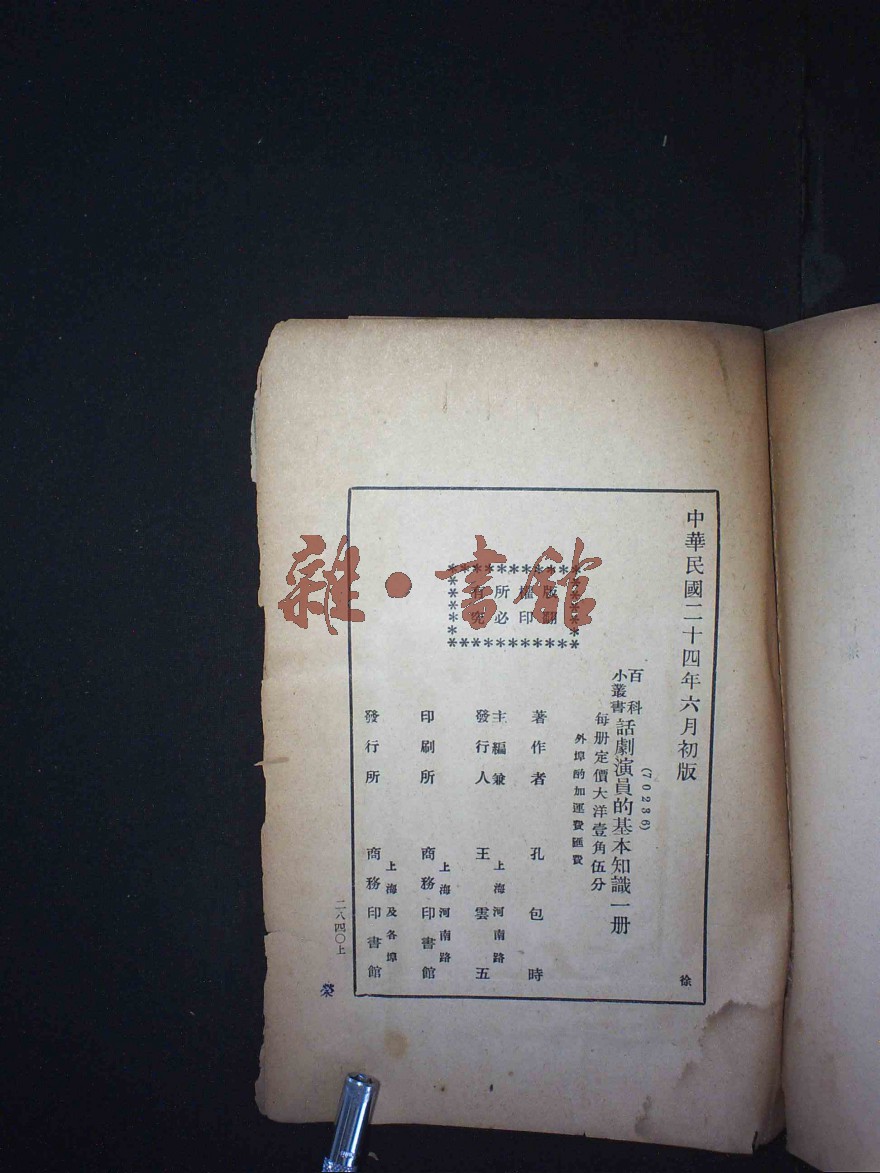 中華民國二十四年六月初版
徐
(70236)
百科
小叢書
話劇演員的基本知識一册
每册定價大洋壹角伍分
外埠酌加運費匯費
版權所有
翻印必究
著作者 孔包時
主編兼
發行人
上海河南路
王雲五
印刷所
上海河南路
商務印書館
發行所
上海及各埠
商務印書館
二八四〇上
榮
雜·書館